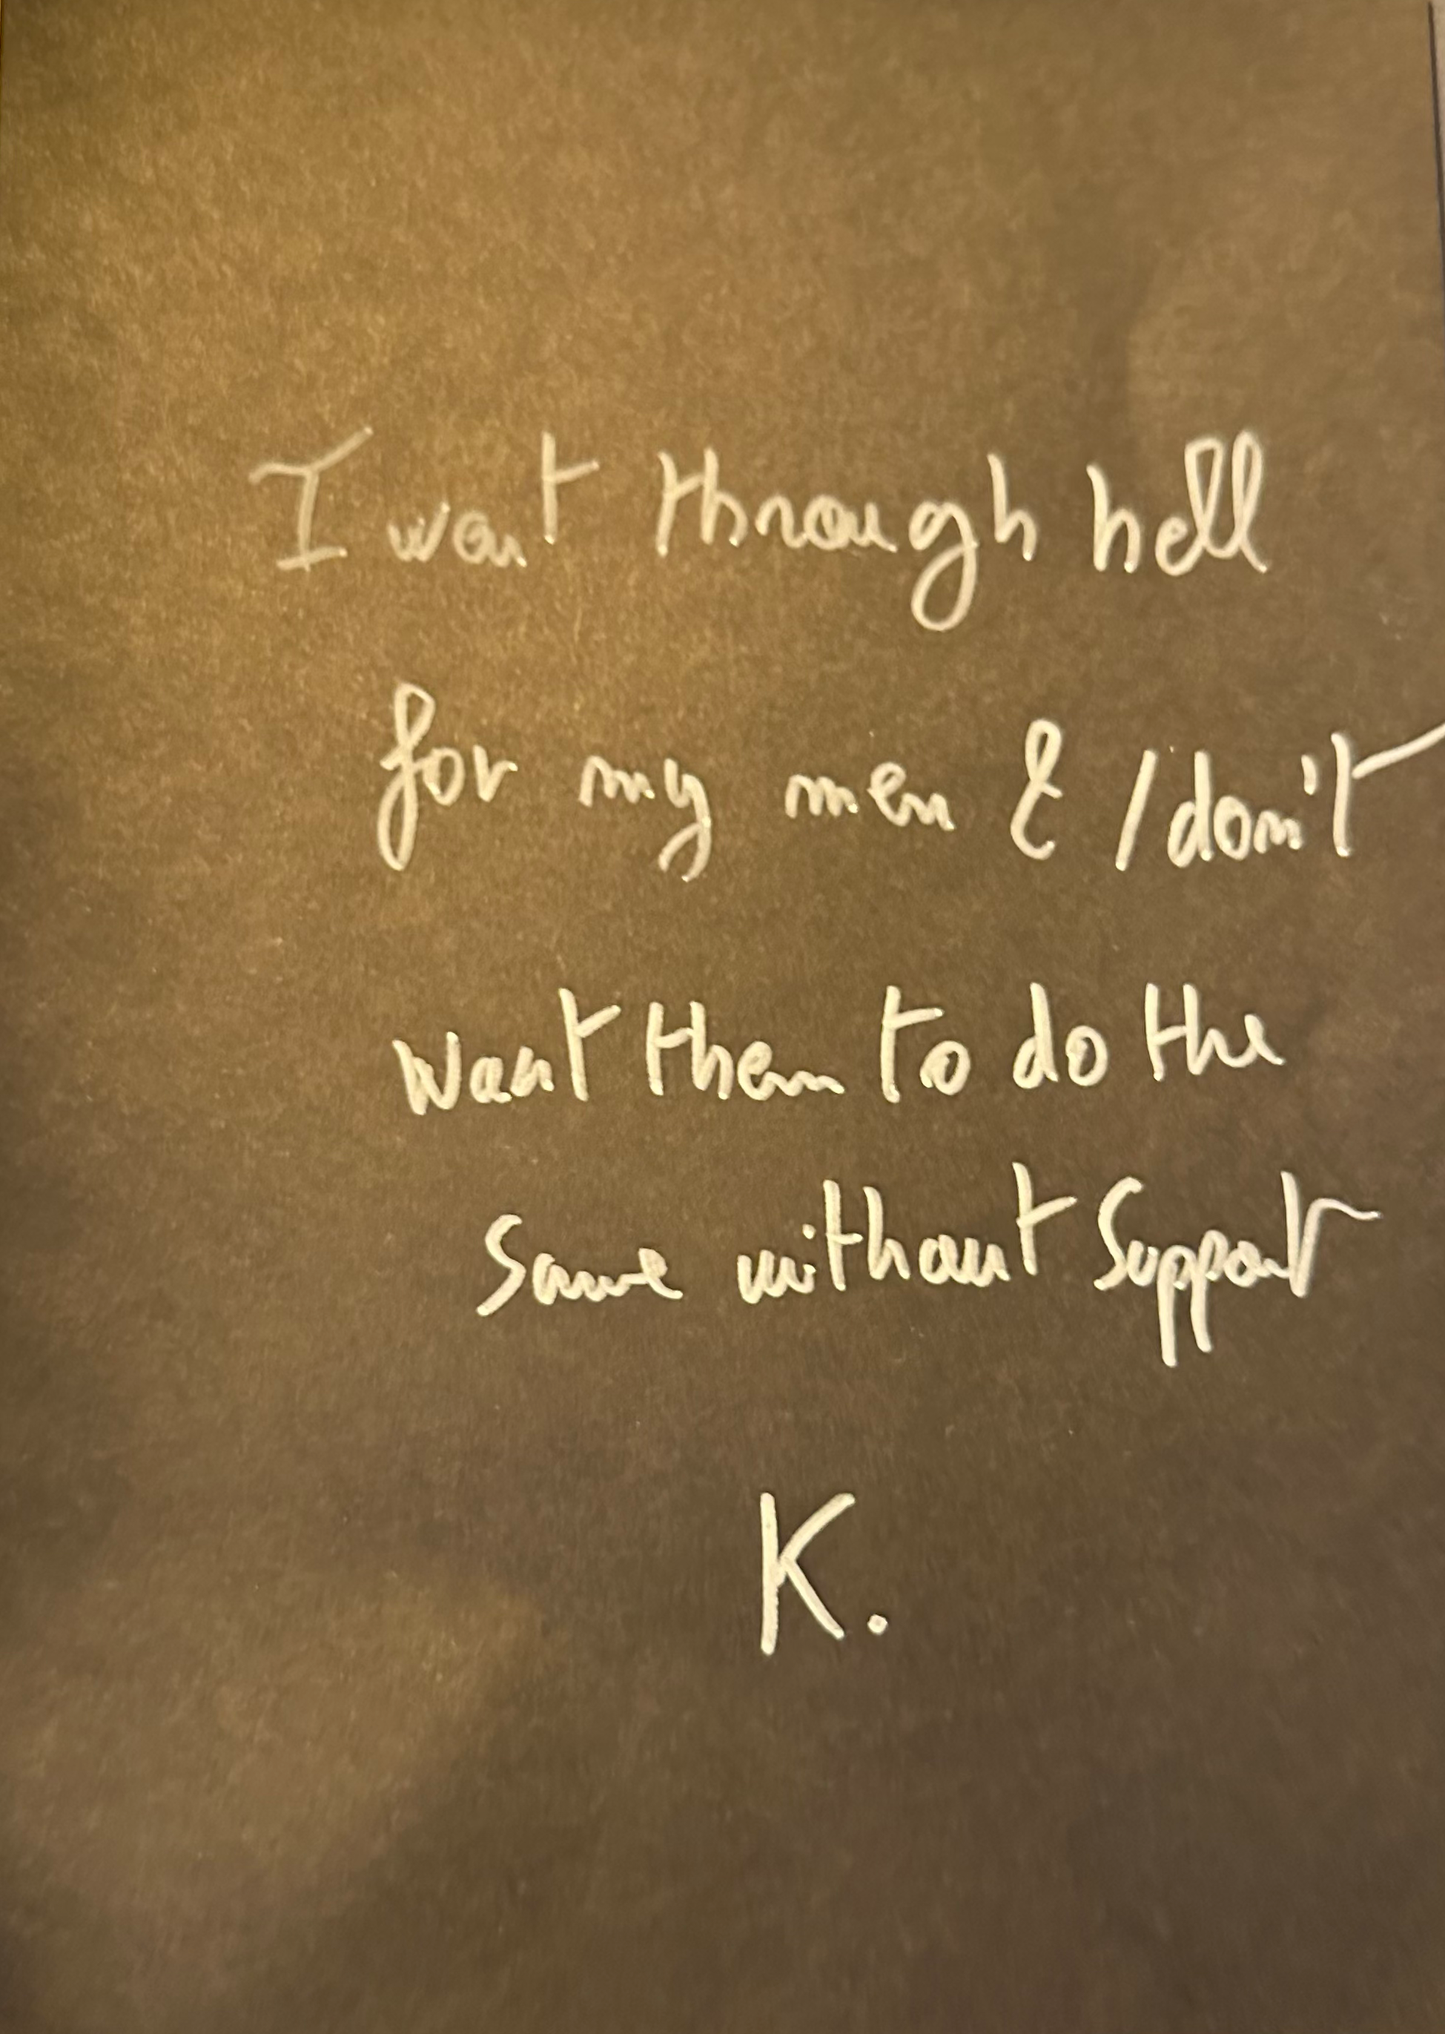 I went through hell
for my men & I don't
want them to do the
same without support
K.